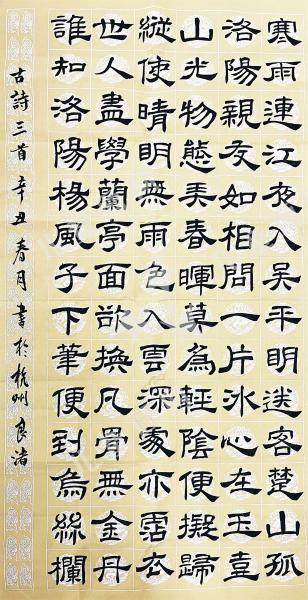 寒雨連江夜入吴平明送客楚山孤
洛陽親友如相問一片冰心在玉壺
山光物態弄春暉莫為輕陰便擬歸
縱使晴明無雨色入雲深處亦霑衣
世人盡學蘭亭面欲換凡骨無金丹
誰知洛陽楊風子下筆便到烏絲欄
古詩三首辛丑春月書於杭州良渚